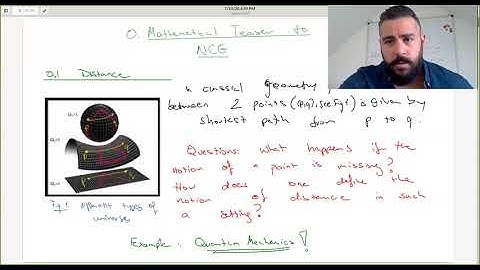 0. Mathematical Teaser to
NCG
0.1 Distance
n classical geometry
between 2 points (p,q), see Fig 1 is given by
shortest path from p to q.
Questions: what happens if the
notion of a point is missing?
How does one define the
notion of distance in such
a setting?
Fig 1: different types of
universes
Example: Quantum Mechanics!